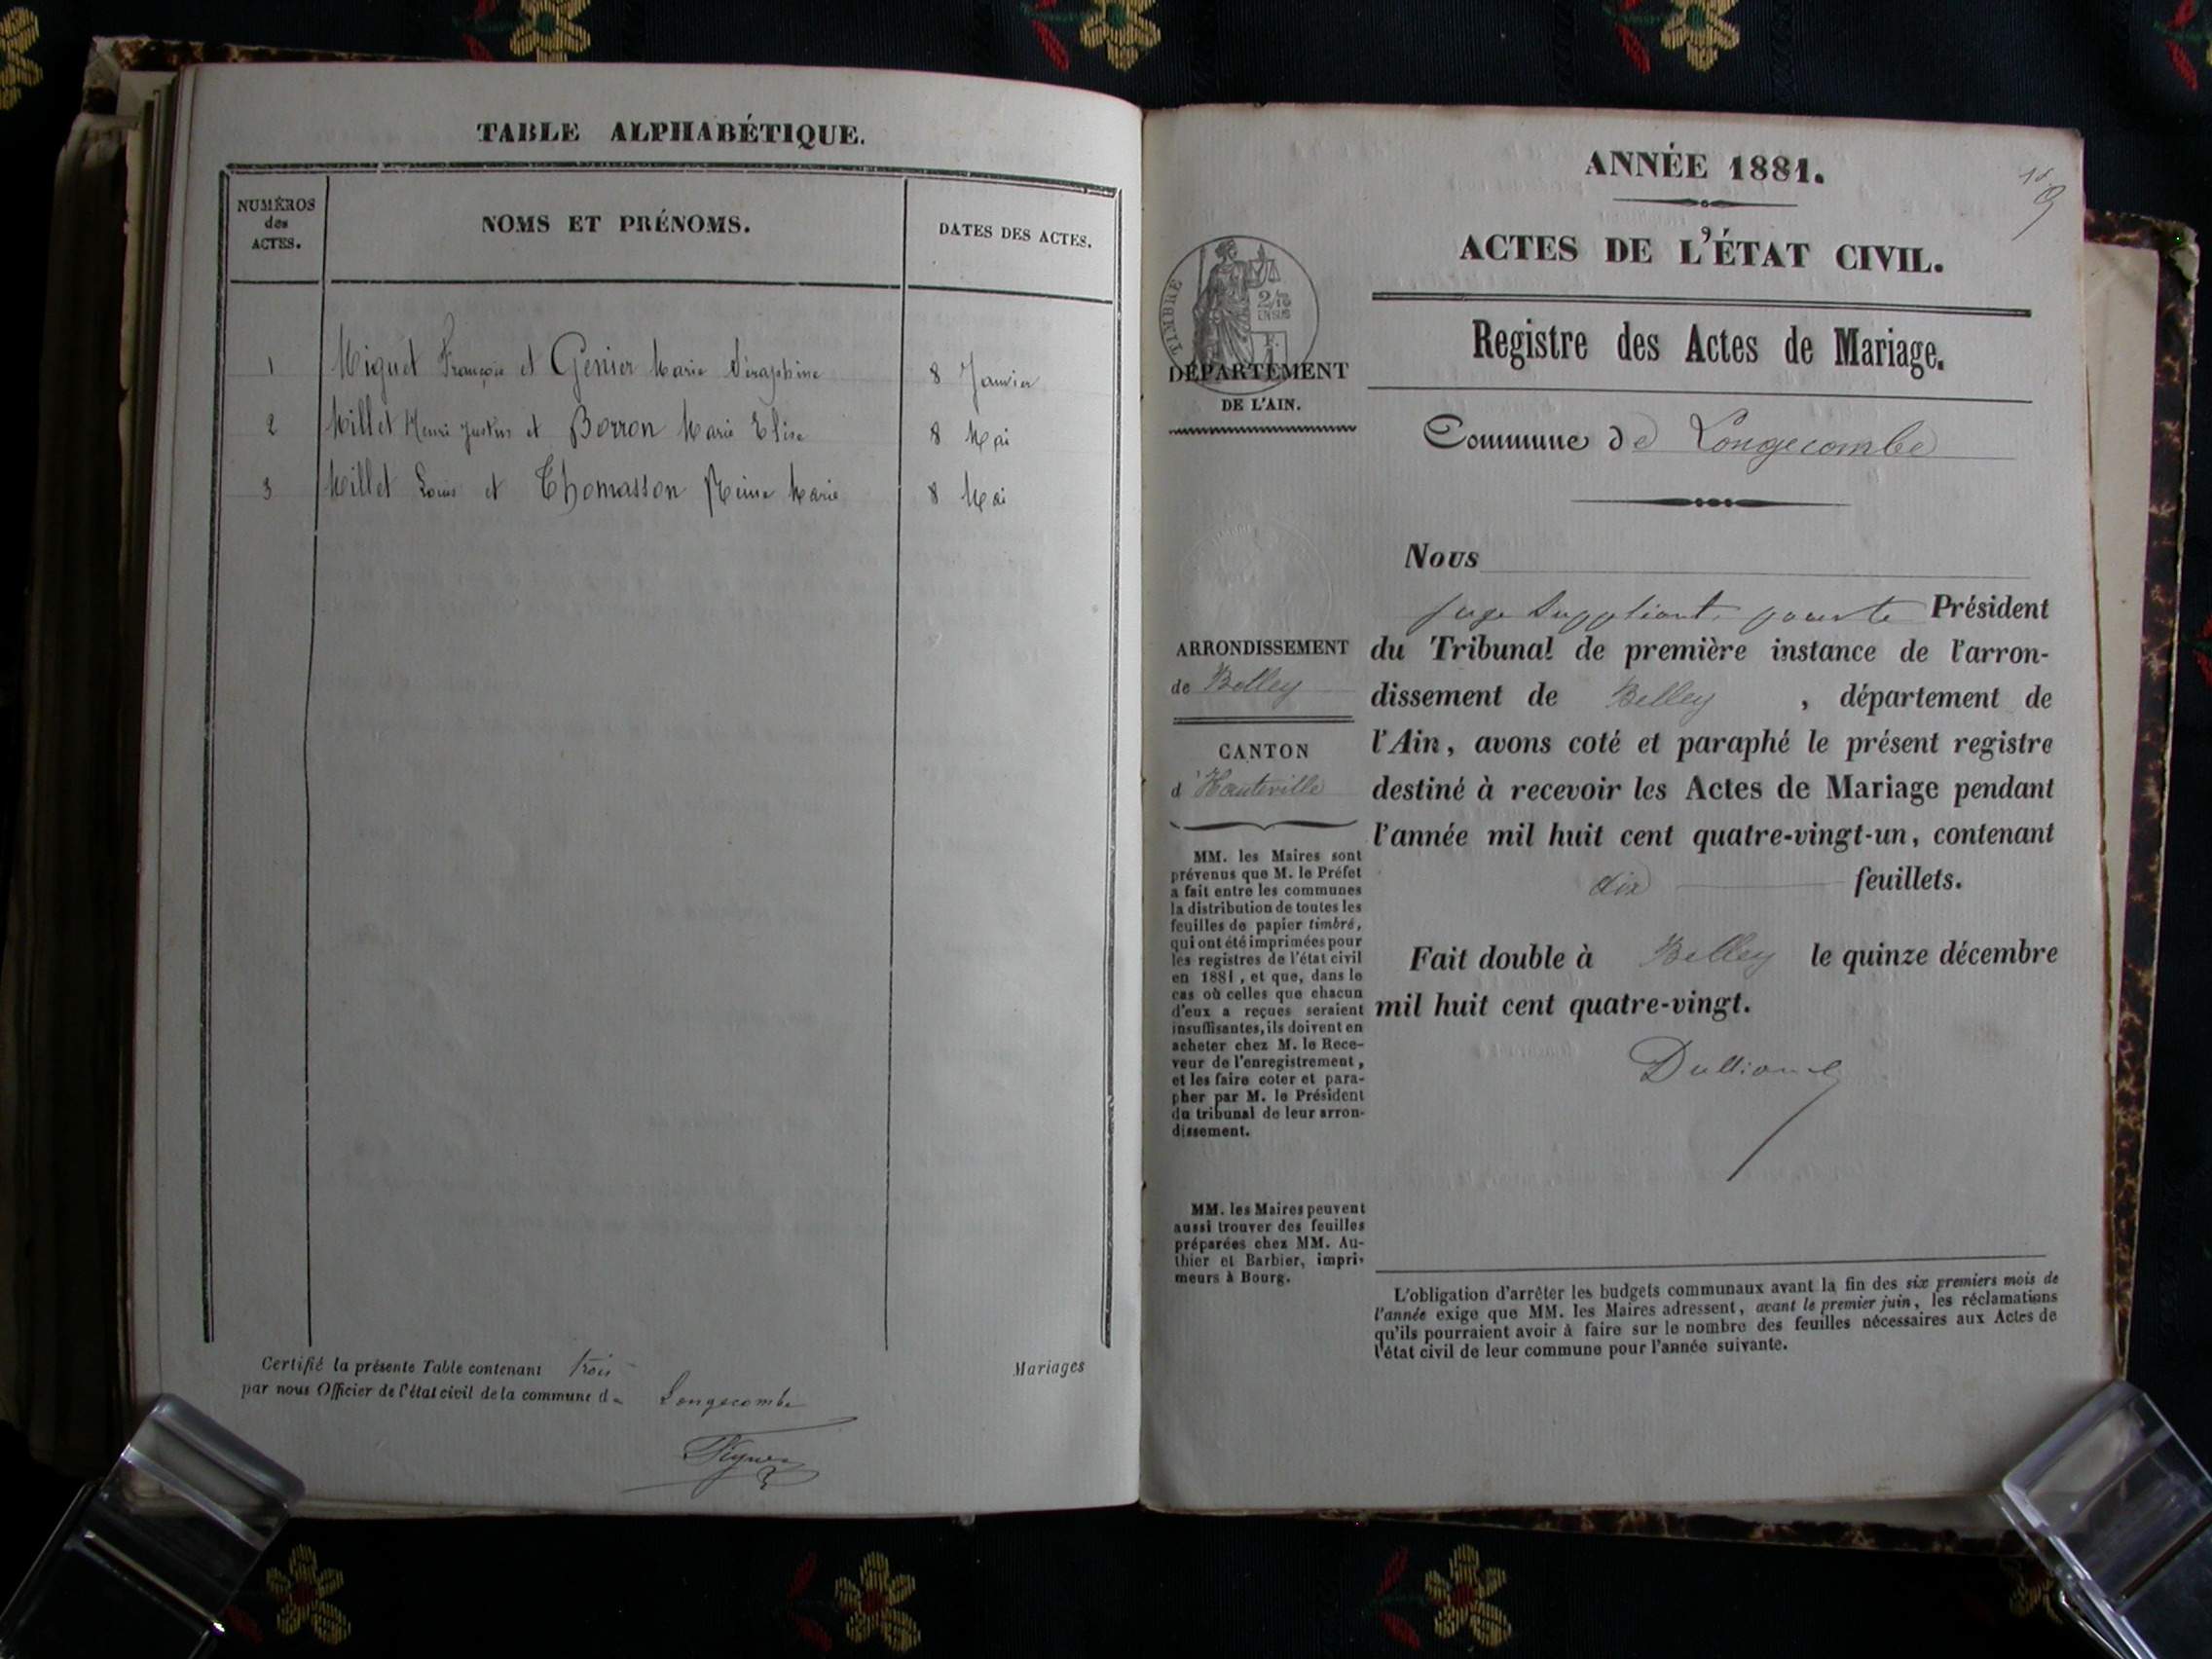 TABLE ALPHABÉTIQUE.
NUMÉROS
des
ACTES.
NOMS ET PRÉNOMS.
DATES DES ACTES.
1 Miguet François et Genier Marie Séraphine 8 Janvier
2 Millet Henri Justin et Borron Marie Elise 8 Mai
3 Millet Louis et Thomasson Reine Marie 8 Mai
Certifié la présente Table contenant trois Mariages
par nous Officier de l'état civil de la commune de Longecombe
ANNÉE 1881.
ACTES DE L'ÉTAT CIVIL.
TIMBRE
2/10
EN SUS
Registre des Actes de Mariage.
DÉPARTEMENT
DE L'AIN.
Commune de Longecombe
Nous
juge suppléant, pour le Président
du Tribunal de première instance de l'arron-
dissement de Belley, département de
l'Ain, avons coté et paraphé le présent registre
destiné à recevoir les Actes de Mariage pendant
l'année mil huit cent quatre-vingt-un, contenant
dix feuillets.
Fait double à Belley le quinze décembre
mil huit cent quatre-vingt.
ARRONDISSEMENT
de Belley
CANTON
d'Hauteville
MM. les Maires sont
prévenus que M. le Préfet
a fait entre les communes
la distribution de toutes les
feuilles de papier timbré,
qui ont été imprimées pour
les registres de l'état civil
en 1881, et que, dans le
cas où celles que chacun
d'eux a reçues seraient
insuffisantes, ils doivent en
acheter chez M. le Rece-
veur de l'enregistrement,
et les faire coter et para-
pher par M. le Président
du tribunal de leur arron-
dissement.
MM. les Maires peuvent
aussi trouver des feuilles
préparées chez MM. Au-
thier et Barbier, impri-
meurs à Bourg.
L'obligation d'arrêter les budgets communaux avant la fin des six premiers mois de
l'année exige que MM. les Maires adressent, avant le premier juin, les réclamations
qu'ils pourraient avoir à faire sur le nombre des feuilles nécessaires aux Actes de
l'état civil de leur commune pour l'année suivante.